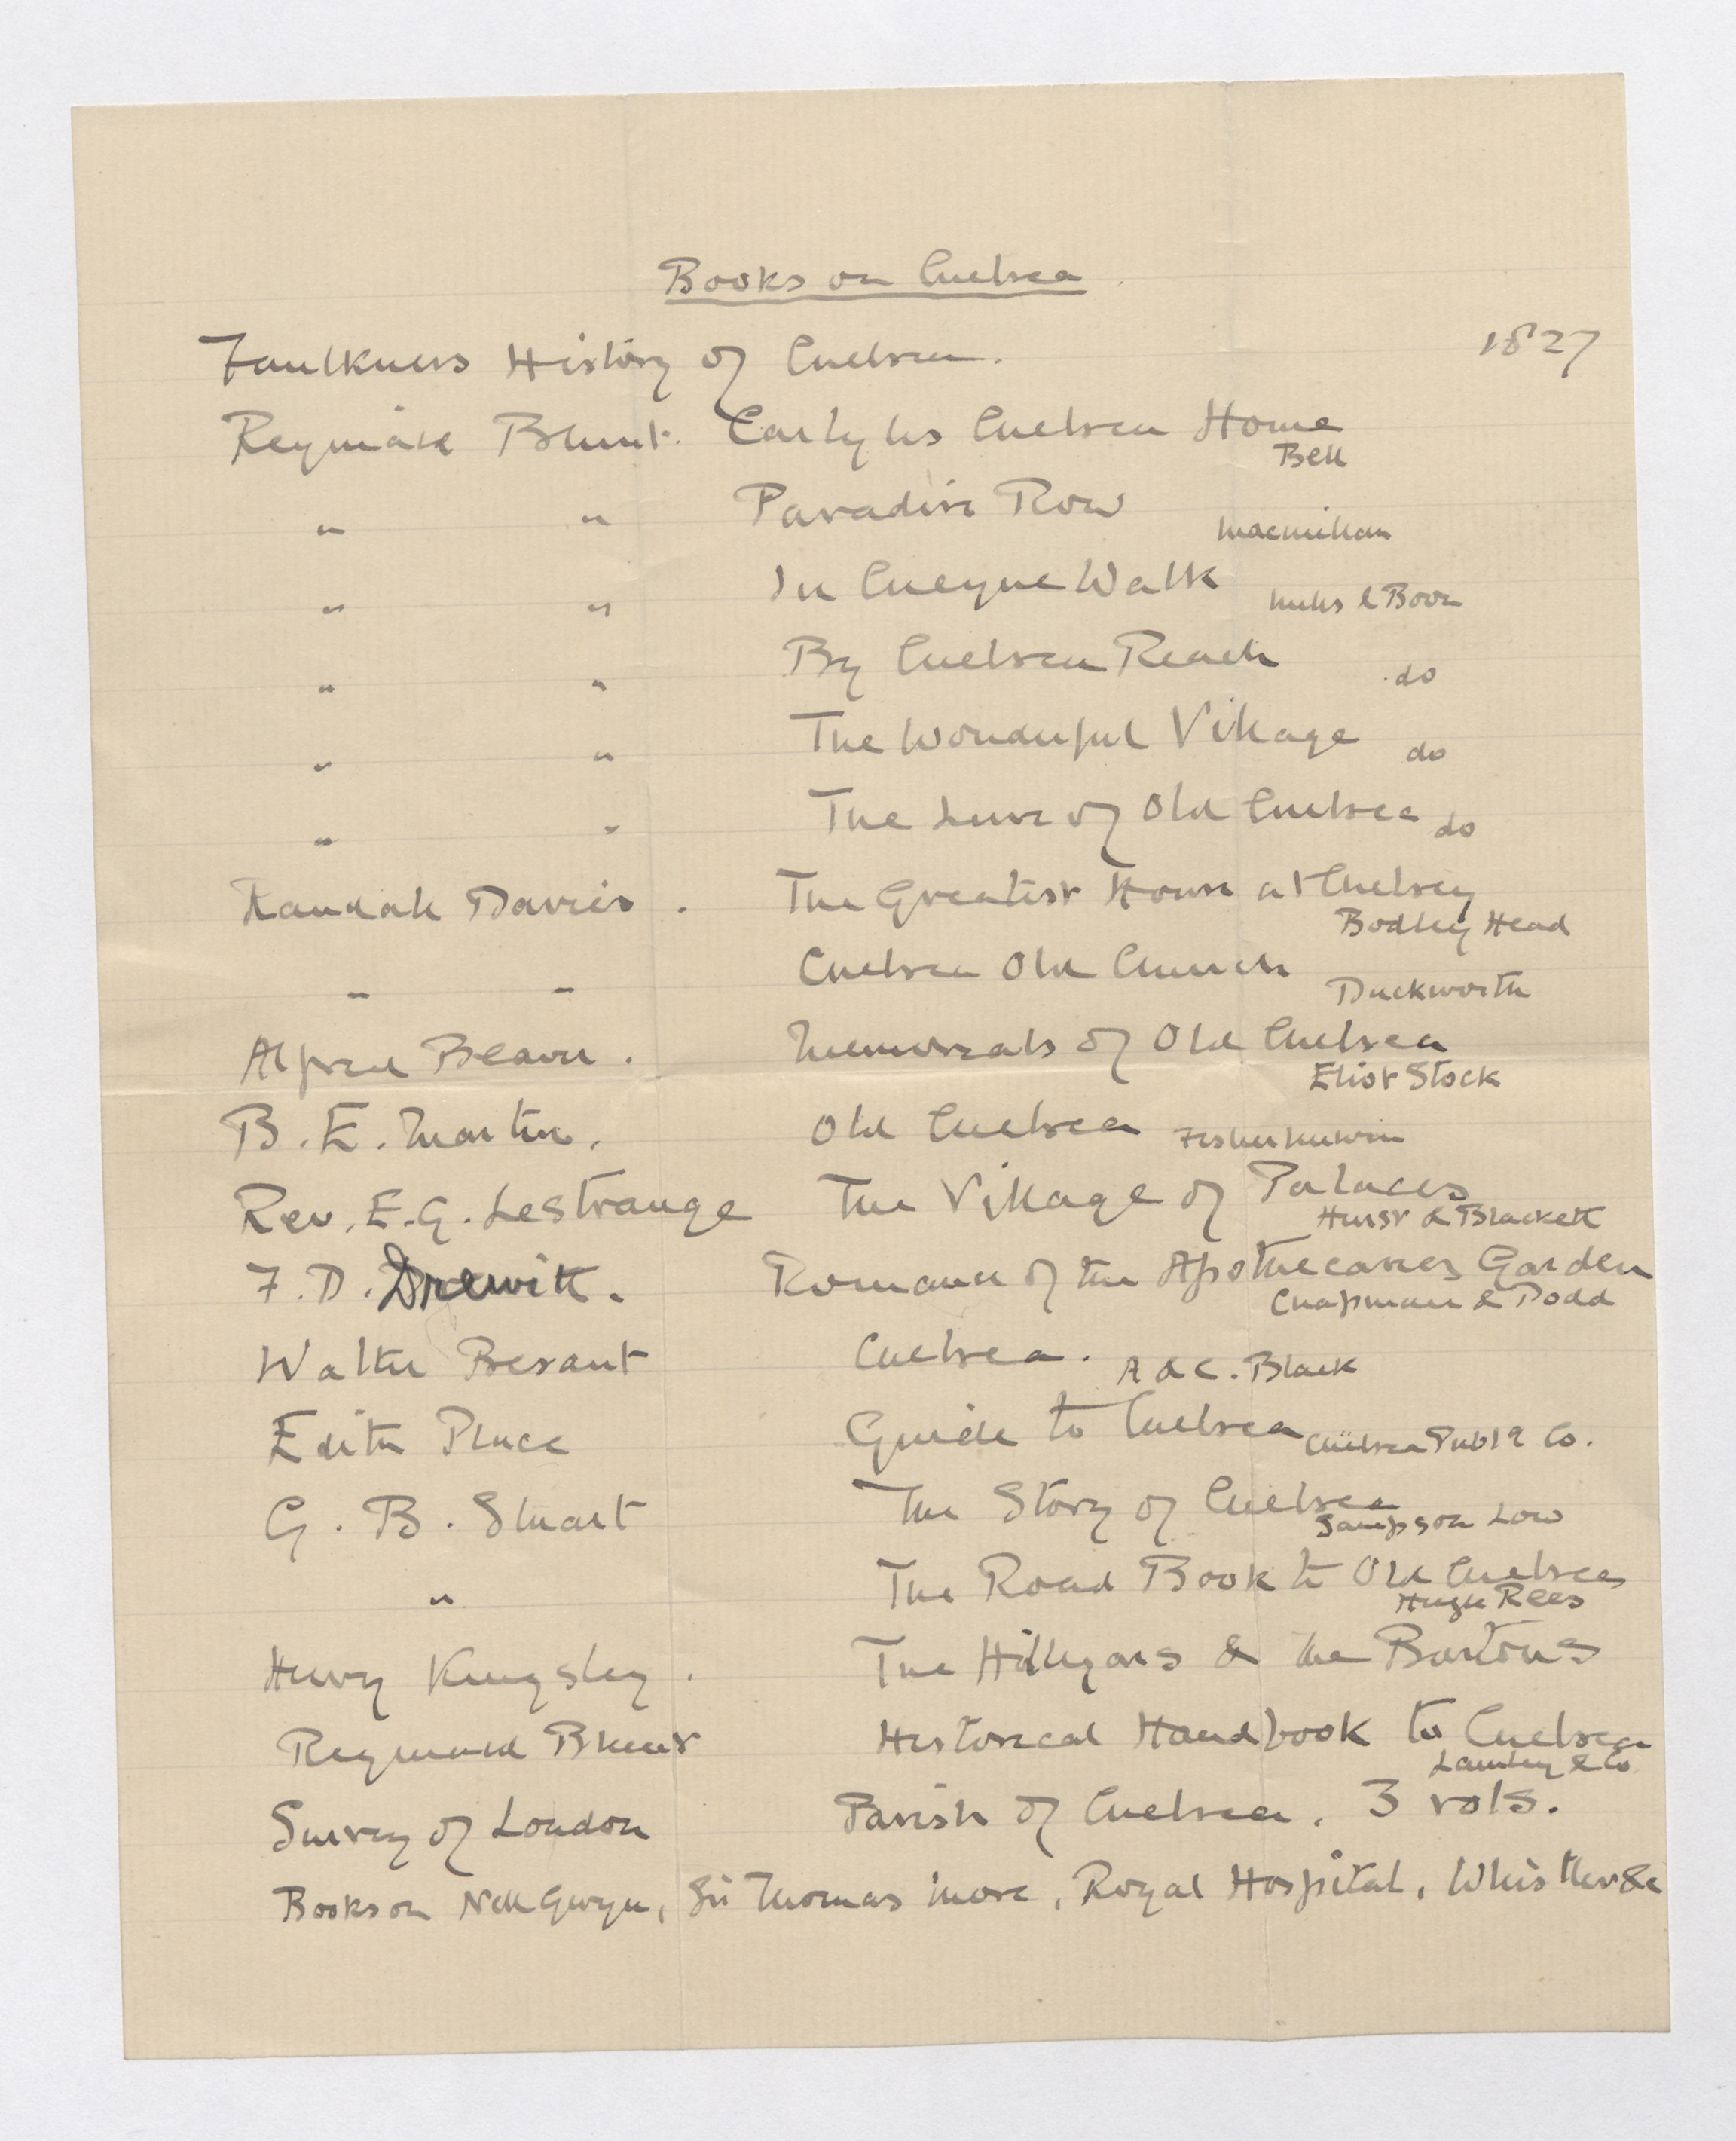 Books on Chelsea
Faulkners History of Chelsea. 1827
Reginald Blunt. Carlyles Chelsea Home
Bell
" " Paradise Row Macmillan
" " In Cheyne Walk Mills & Boon
" " By Chelsea Reach do
" " The Wonderful Village do
" " The Lure of Old Chelsea do
Randall Davies. The Greatest House at Chelsey
Bodley Head
" " Chelsea Old Church Duckworth
Alfred Beaver. Memorials of Old Chelsea
Eliot Stock
B. E. Martin. Old Chelsea Fisher Unwin
Rev. E. G. LeStrange The Village of Palaces
Hurst & Blackett
F. D. Drewitt. Romance of the Apothecaries Garden
Chapman & Dodd
Walter Besant Chelsea. A & C. Black
Edith Place Guide to Chelsea Chelsea Publg Co.
G. B. Stuart The Story of Chelsea
Sampson Low
" The Road Book to Old Chelsea
Hugh Rees
Henry Kingsley. The Hillyars & the Burtons
Reginald Blunt Historical Handbook to Chelsea
Lamley & Co
Survey of London Parish of Chelsea. 3 vols.
Books on Nell Gwyn, Sir Thomas More, Royal Hospital, Whistler &c